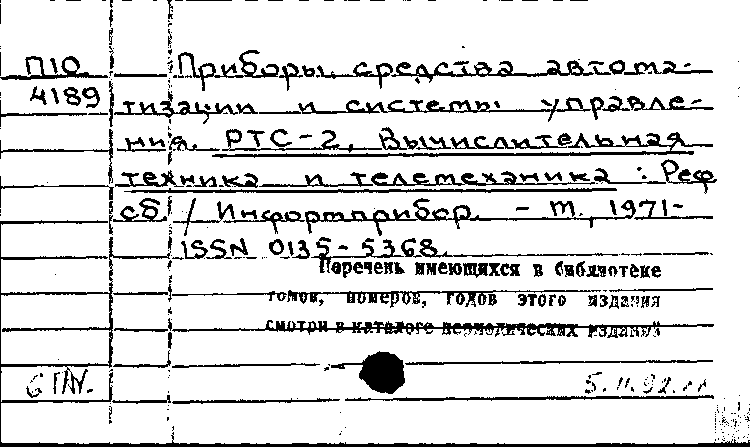 П10 Приборы, средства автома-
4189 тизации и системы управле-
ния. РТС-2, Вычислительная
техника и телемеханика : Реф
сб. / Информприбор. - М., 1971-
ISSN 0135-5368.
Перечень имеющихся в библиотеке
томов, номеров, годов этого издания
смотри в каталоге периодических изданий
5.11.92.